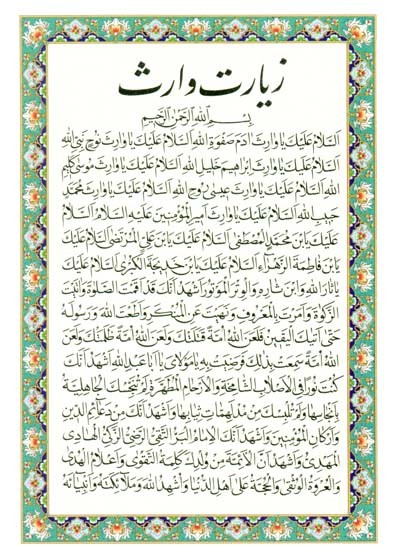 زیارت وارث
بِسْمِ اللهِ الرَّحْمٰنِ الرَّحیمِ
اَلسَّلامُ عَلَیْكَ یا وارِثَ ادَمَ صَفْوَةِ اللهِ اَلسَّلامُ عَلَیْكَ یا وارِثَ نُوحٍ نَبِیِّ اللهِ
اَلسَّلامُ عَلَیْكَ یا وارِثَ اِبْراهیمَ خَلیلِ اللهِ اَلسَّلامُ عَلَیْكَ یا وارِثَ مُوسی كَلیمِ
اللهِ اَلسَّلامُ عَلَیْكَ یا وارِثَ عیسی رُوحِ اللهِ اَلسَّلامُ عَلَیْكَ یا وارِثَ مُحَمَّدٍ
حَبیبِ اللهِ اَلسَّلامُ عَلَیْكَ یا وارِثَ اَمیرِ الْمُؤْمِنینَ عَلَیْهِ السَّلامُ اَلسَّلامُ
عَلَیْكَ یَابْنَ مُحَمَّدٍ الْمُصْطَفی اَلسَّلامُ عَلَیْكَ یَابْنَ عَلِیٍّ الْمُرْتَضی اَلسَّلامُ عَلَیْكَ
یَابْنَ فاطِمَةَ الزَّهْراءِ اَلسَّلامُ عَلَیْكَ یَابْنَ خَدیجَةَ الْكُبْری اَلسَّلامُ عَلَیْكَ
یا ثارَ اللهِ وَابْنَ ثارِهِ وَالْوِتْرَ الْمَوْتُورَ اَشْهَدُ اَنَّكَ قَدْ اَقَمْتَ الصَّلوةَ وَاتَیْتَ
الزَّكوةَ وَاَمَرْتَ بِالْمَعْرُوفِ وَنَهَیْتَ عَنِ الْمُنْكَرِ وَاَطَعْتَ اللهَ وَرَسُولَهُ
حَتّی اَتیكَ الْیَقینُ فَلَعَنَ اللهُ اُمَّةً قَتَلَتْكَ وَلَعَنَ اللهُ اُمَّةً ظَلَمَتْكَ وَلَعَنَ
اللهُ اُمَّةً سَمِعَتْ بِذلِكَ فَرَضِیَتْ بِهِ یا مَوْلایَ یا اَبا عَبْدِ اللهِ اَشْهَدُ اَنَّكَ
كُنْتَ نُورًا فِی الْاَصْلابِ الشّامِخَةِ وَالْاَرْحامِ الْمُطَهَّرَةِ لَمْ تُنَجِّسْكَ الْجاهِلِیَّةُ
بِاَنْجاسِها وَلَمْ تُلْبِسْكَ مِنْ مُدْلَهِمّاتِ ثِیابِها وَاَشْهَدُ اَنَّكَ مِنْ دَعائِمِ الدّینِ
وَاَرْكانِ الْمُؤْمِنینَ وَاَشْهَدُ اَنَّكَ الْاِمامُ الْبَرُّ التَّقِیُّ الرَّضِیُّ الزَّكِیُّ الْهادِی
الْمَهْدِیُّ وَاَشْهَدُ اَنَّ الْاَئِمَّةَ مِنْ وُلْدِكَ كَلِمَةُ التَّقْوی وَاَعْلامُ الْهُدی
وَالْعُرْوَةُ الْوُثْقی وَالْحُجَّةُ عَلی اَهْلِ الدُّنْیا وَاُشْهِدُ اللهَ وَمَلائِكَتَهُ وَاَنْبِیائَهُ